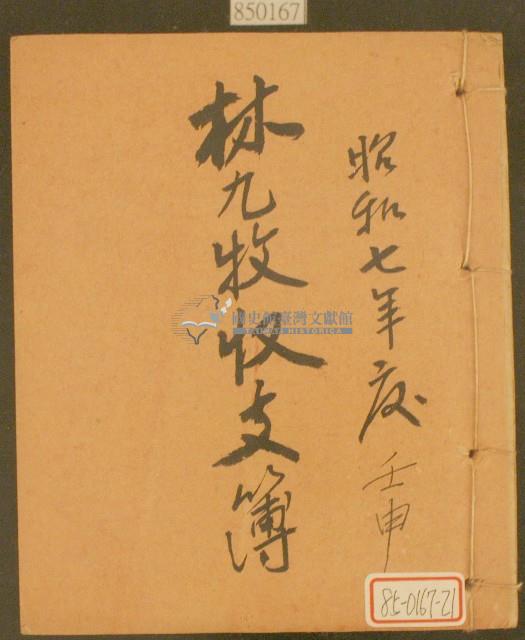 850167
昭和七年度 壬申
林九牧收支簿
國史館臺灣文獻館
TAIWAN HISTORICA
85-0167-21